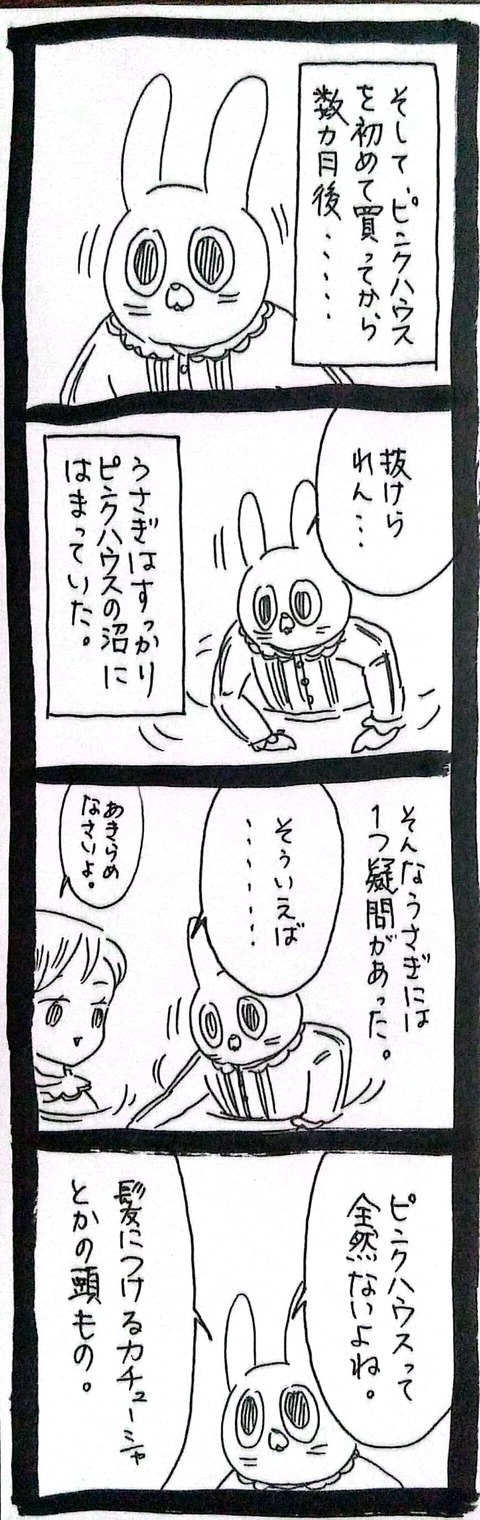 そして、ピンクハウス
を初めて買ってから
数カ月後・・・・・
抜けら
れん・・・
うさぎはすっかり
ピンクハウスの沼に
はまっていた。
そんなうさぎには
1つ疑問があった。
そういえば
・・・・・・・
あきらめ
なさいよ。
ピンクハウスって
全然ないよね。
髪につけるカチューシャ
とかの頭もの。